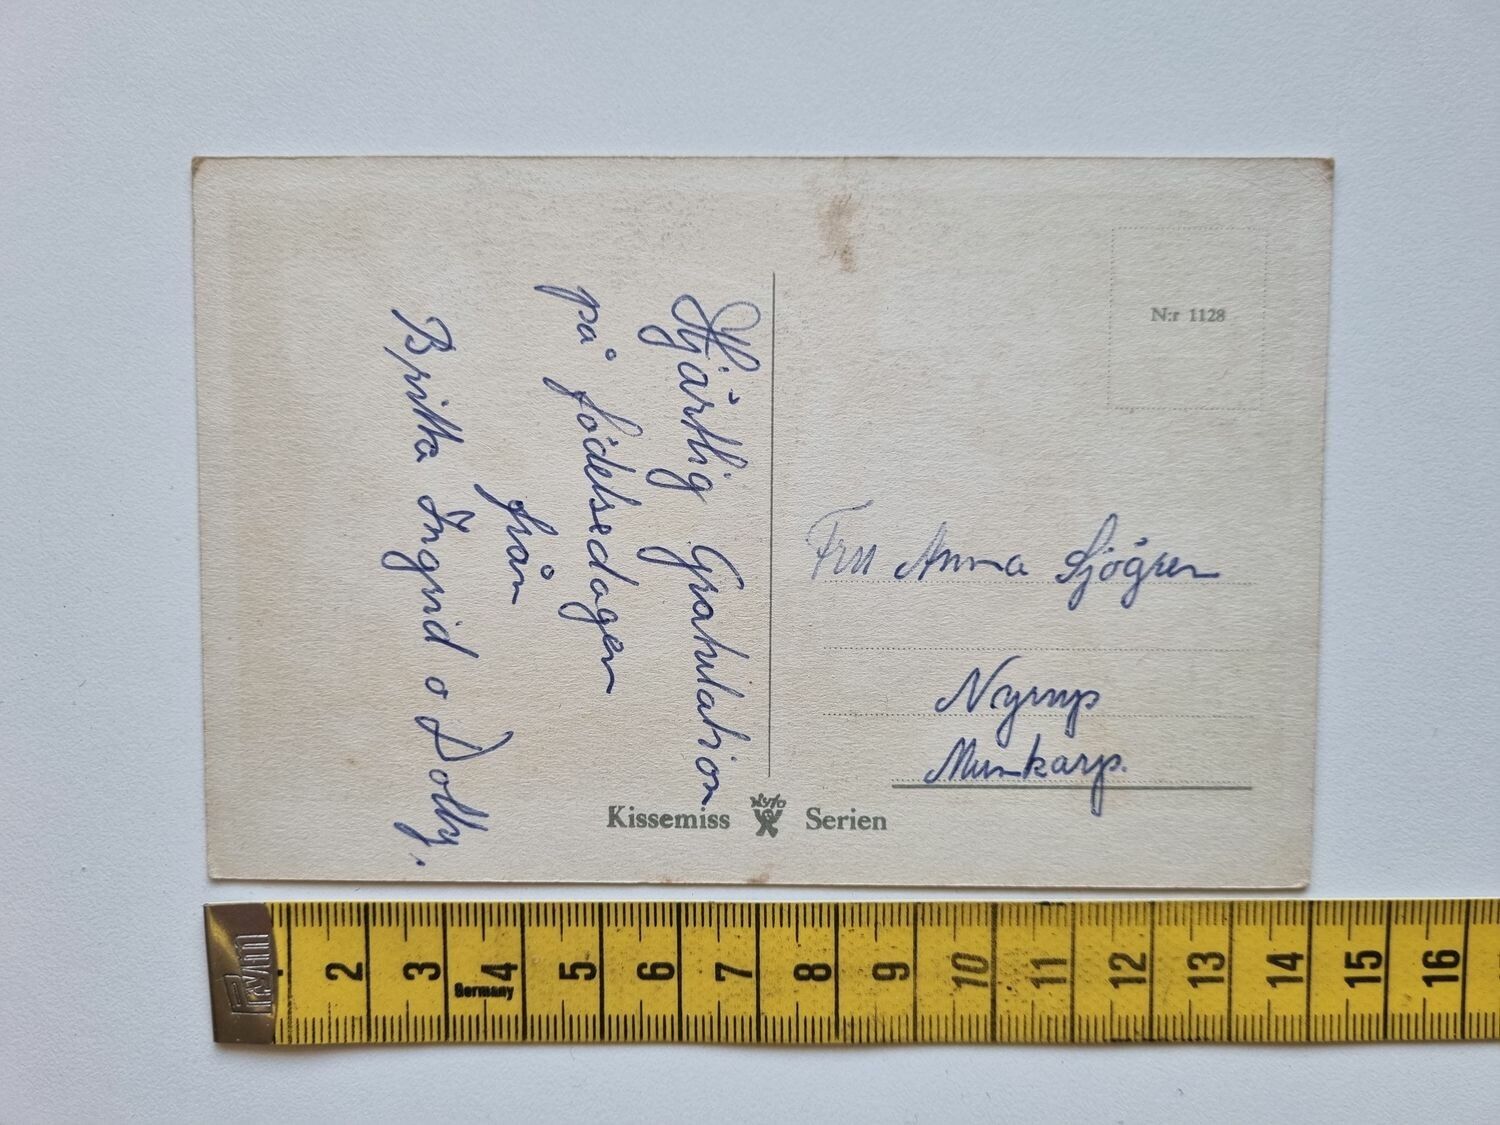 Hjärtlig Gratulation
på födelsedagen
från
Britta Ingrid o Dolly.
N:r 1128
Fru Anna Sjögren
Nyrup
Munkarp.
Kissemiss Serien
2 3 4 5 6 7 8 9 10 11 12 13 14 15 16
Germany
Prym